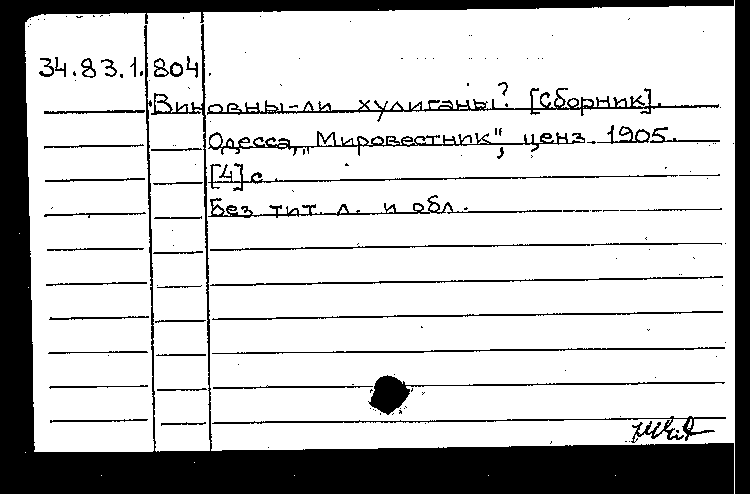 34.83.1.804.
Виновны-ли хулиганы? [Сборник].
Одесса, „Мировестник", ценз. 1905.
[4] с.
Без тит. л. и обл.